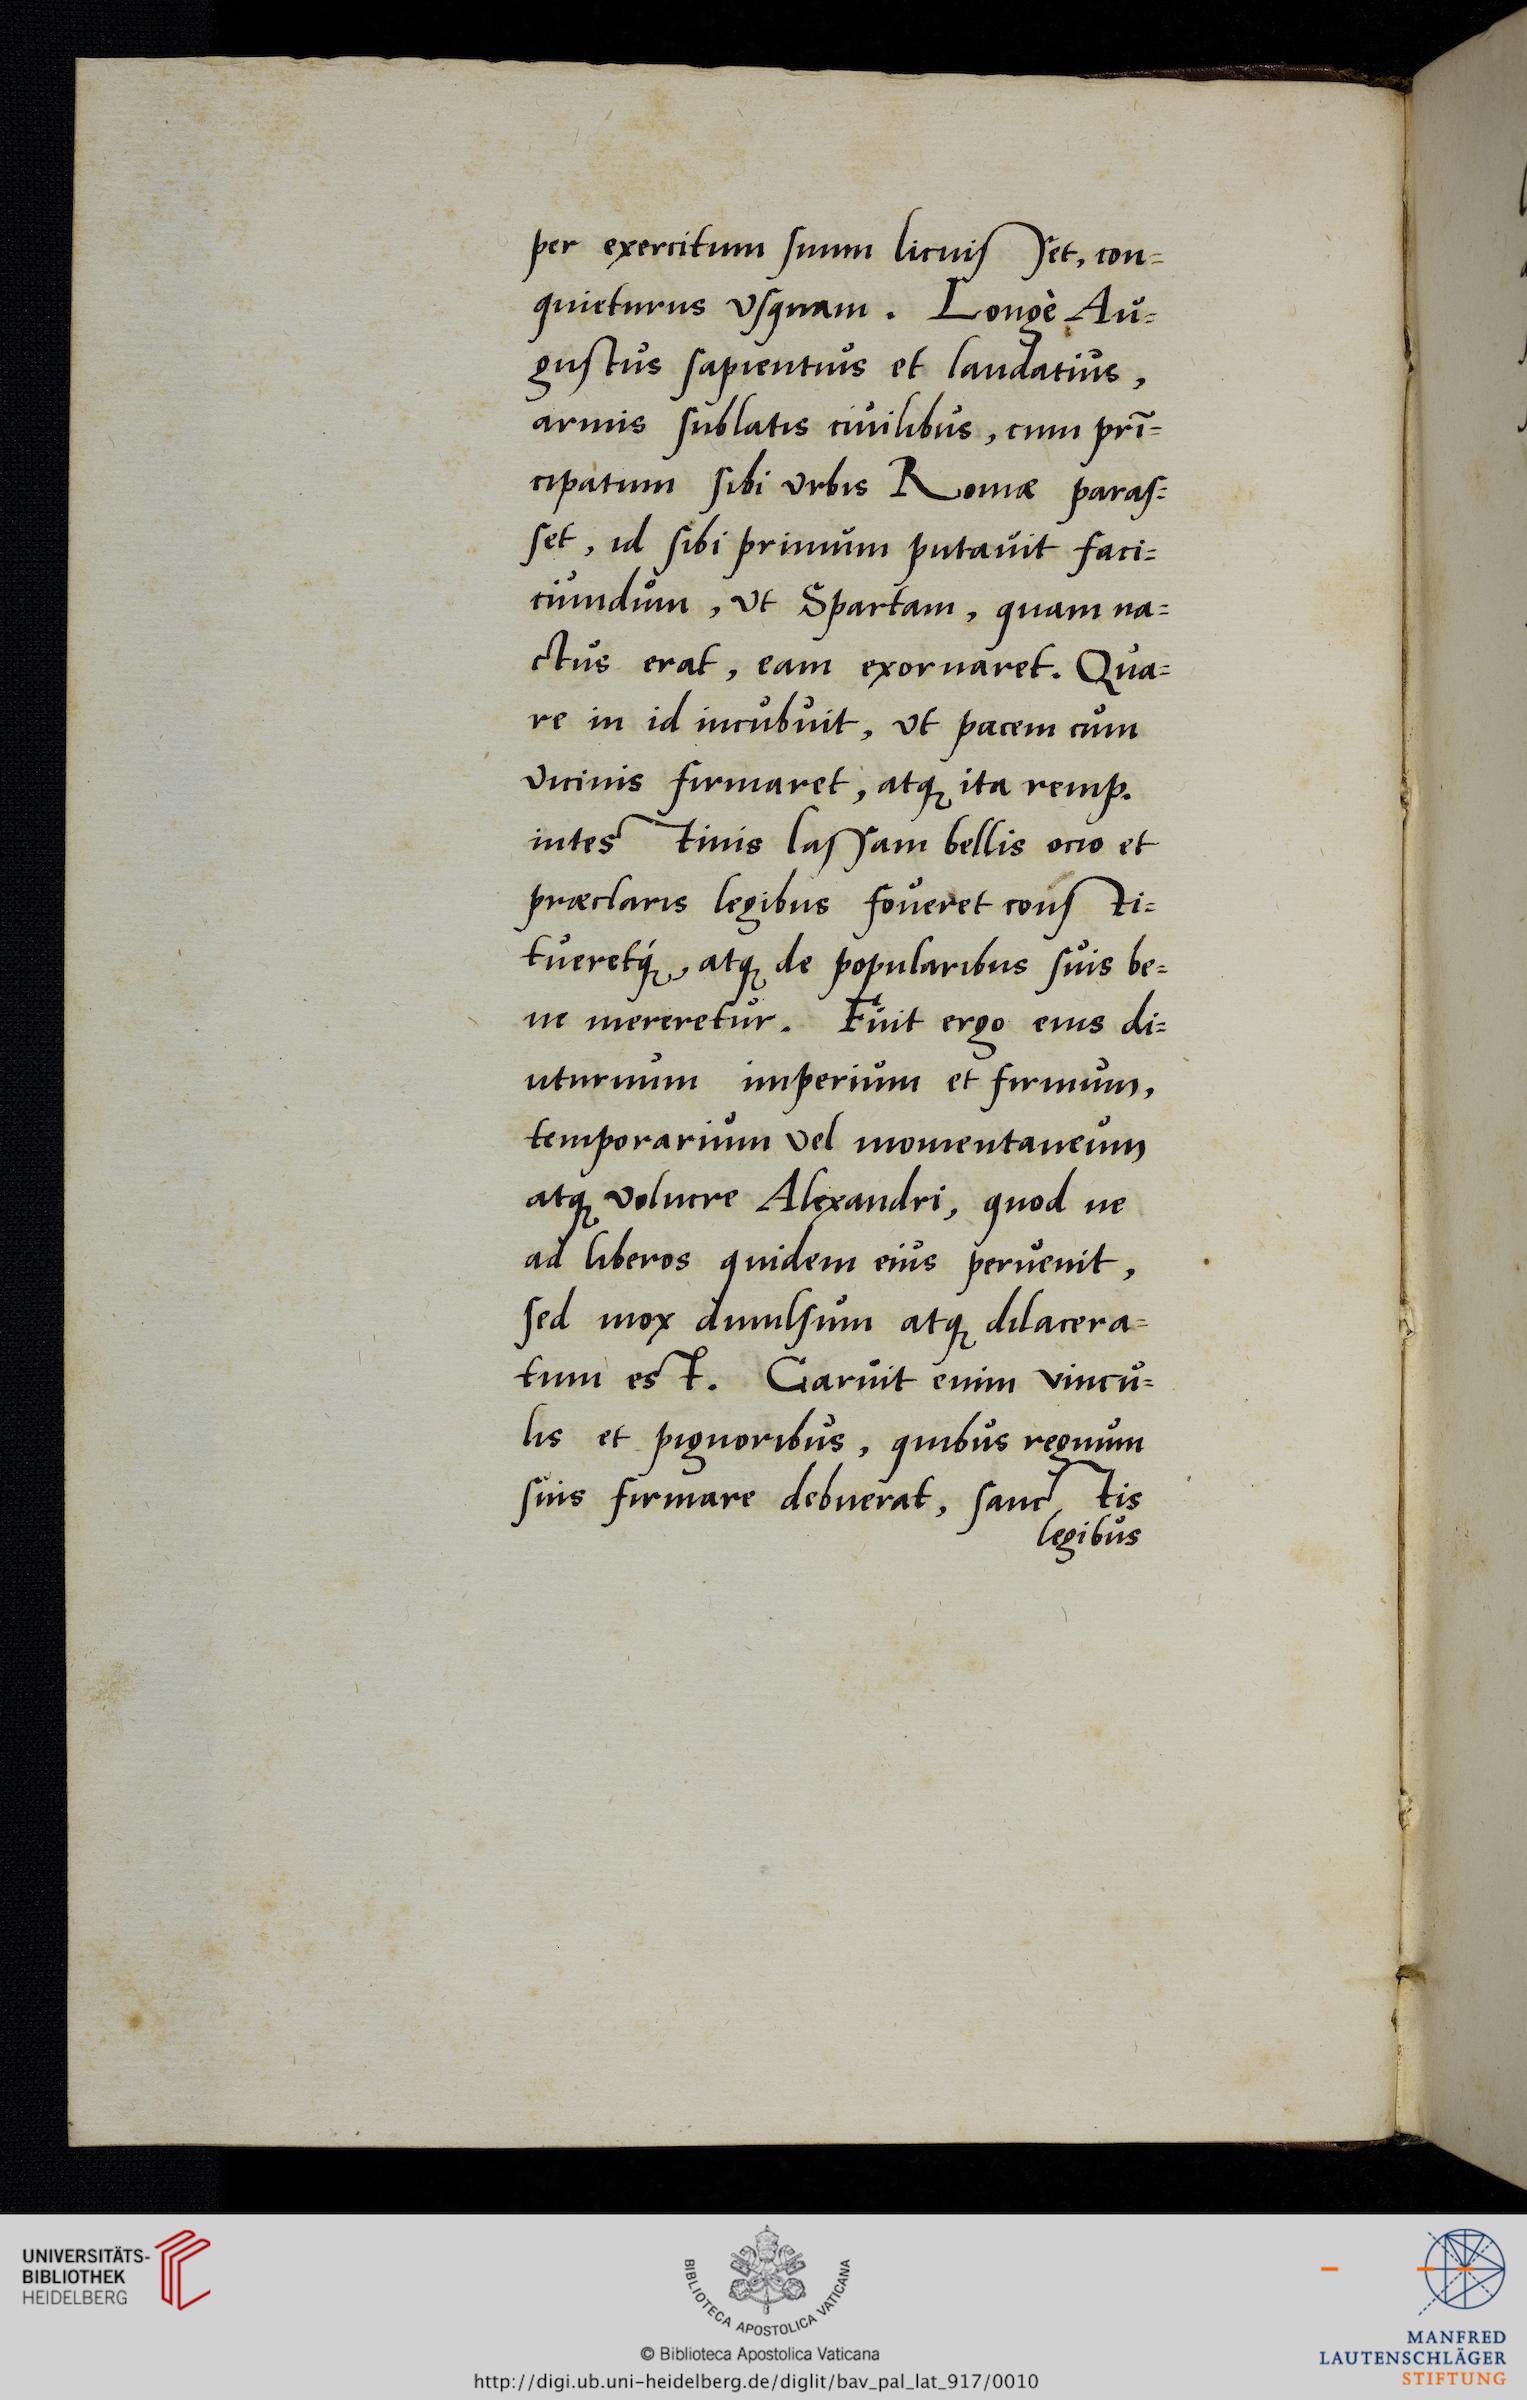 per exercitum suum licuisset, con=
quieturus vsquam. Longè Au=
gustus sapientius et laudatius,
armis sublatis ciuilibus, cum prī=
cipatum sibi vrbis Romæ paras=
set, id sibi primum putauit faci=
ciundum, vt Spartam, quam na=
ctus erat, eam exornaret. Qua=
re in id incubuit, vt pacem cum
vicinis firmaret, atq; ita remp.
intestinis lassam bellis ocio et
præclaris legibus foueret consti=
tueretq́;, atq; de popularibus suis be=
ne mereretur. Fuit ergo eius di=
uturnum imperium et firmum,
temporarium vel momentaneum
atq; volucre Alexandri, quod ne
ad liberos quidem eius peruenit,
sed mox diuulsum atq; dilacera=
tum est. Caruit enim vincu=
lis et pignoribus, quibus regnum
suis firmare debuerat, sanctis
legibus
UNIVERSITÄTS-
BIBLIOTHEK
HEIDELBERG
BIBLIOTECA APOSTOLICA VATICANA
© Biblioteca Apostolica Vaticana
http://digi.ub.uni-heidelberg.de/diglit/bav_pal_lat_917/0010
MANFRED
LAUTENSCHLÄGER
STIFTUNG